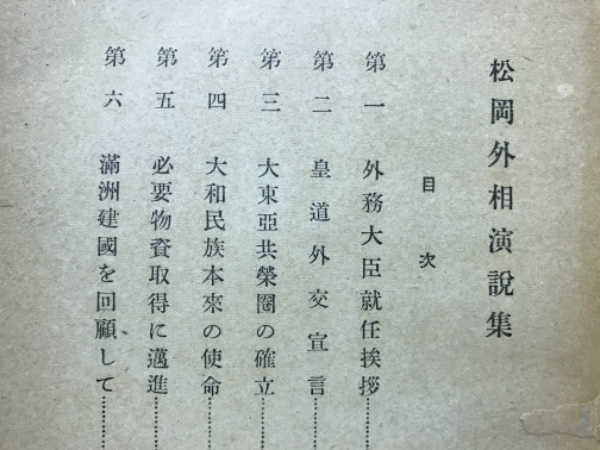 松岡外相演說集
目次
第一 外務大臣就任挨拶
第二 皇道外交宣言
第三 大東亞共榮圈の確立
第四 大和民族本來の使命
第五 必要物資取得に邁進
第六 滿洲建國を回顧して